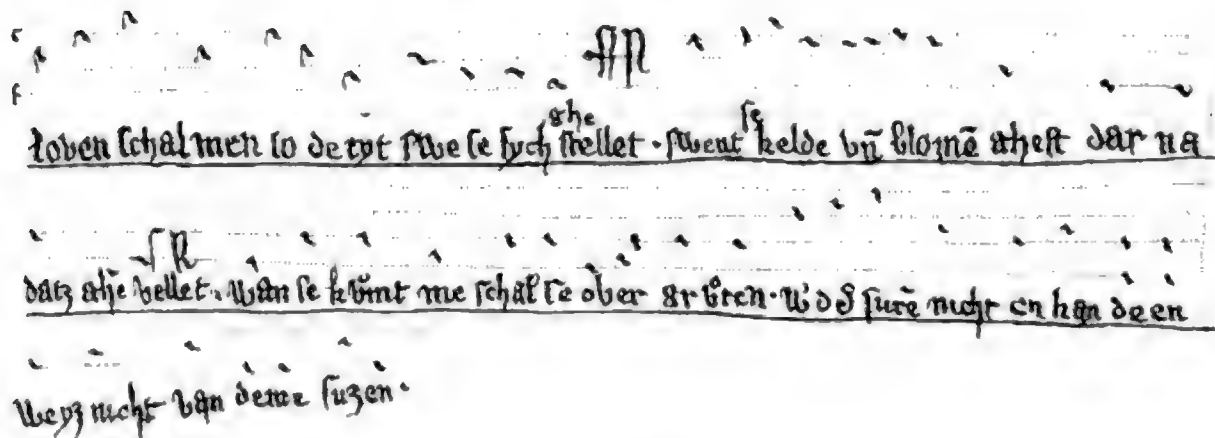 loven schal men so de tyt swe se sych ghe stellet · swent se kelde vñ blomē gheft dar na
datz ghē vellet · wan se kumt me schal se ober arbten · w d sure nicht en han de en
weyz nicht van deme suzen ·